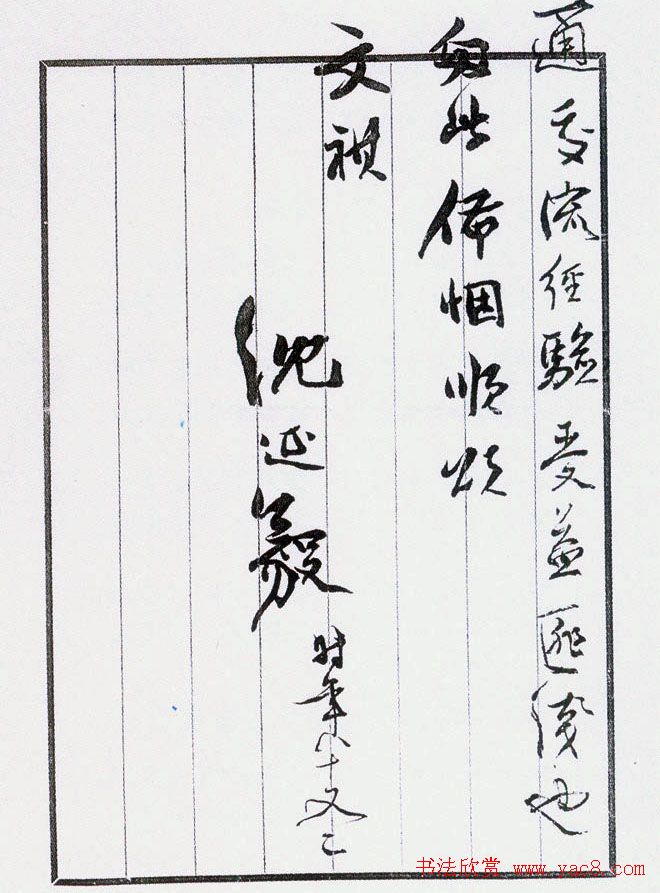 通交流經驗受益匪淺也
匆此佈悃順頌
文祺
沈延毅
时年八十又二
书法欣赏 www.yac8.com